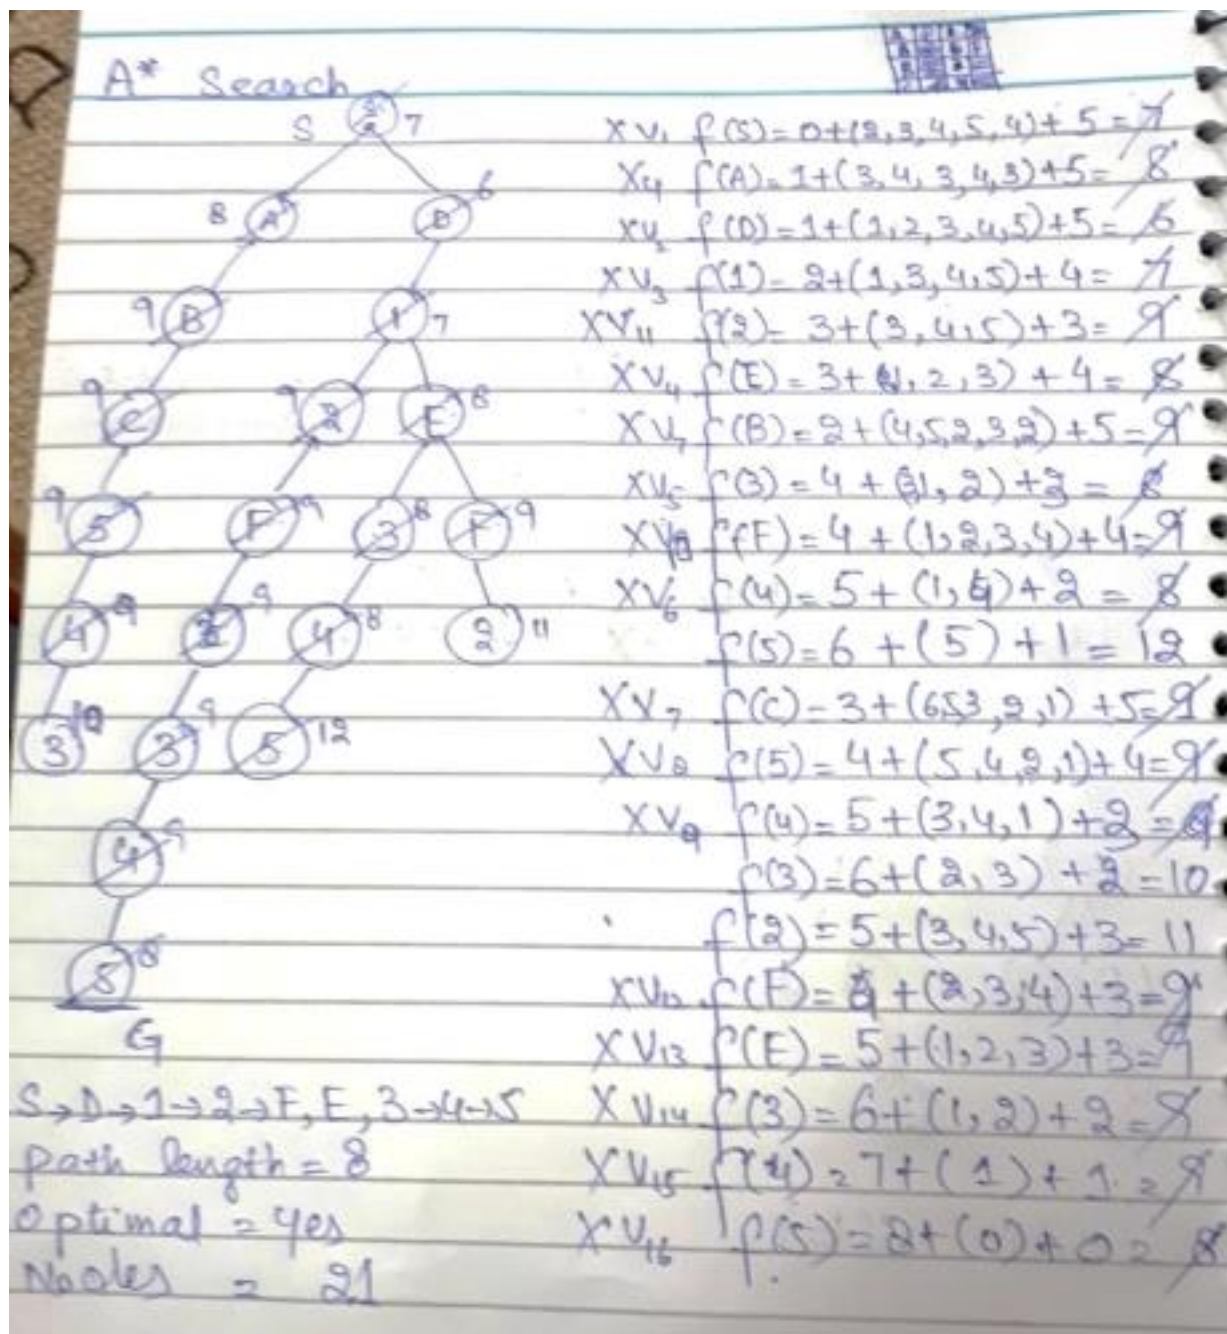 A* Search
S 7
8 A D 6
9 B 1 7
9 C 9 2 E 8
9 5 F 9 3 8 F 9
4 9 E 9 4 8 2 11
3 10 3 9 5 12
4 9
5 8
G
S→D→1→2→F, E, 3→4→5
path length = 8
Optimal = yes
Nodes = 21
XV1 f(S)=0+(2,3,4,5,4)+5=7
X4 f(A)=1+(3,4,3,4,3)+5=8
XV2 f(D)=1+(1,2,3,4,5)+5=6
XV3 f(1)=2+(1,3,4,5)+4=7
XV11 f(2)=3+(3,4,5)+3=9
XV4 f(E)=3+(1,2,3)+4=8
XV7 f(B)=2+(4,5,2,3,2)+5=9
XV5 f(3)=4+(1,2)+3=8
f(F)=4+(1,2,3,4)+4=9
XV6 f(4)=5+(1,4)+2=8
f(5)=6+(5)+1=12
XV7 f(C)-3+(653,2,1)+5=9
XV8 f(5)=4+(5,4,2,1)+4=9
XV9 f(4)=5+(3,4,1)+3=9
f(3)=6+(2,3)+2=10
f(2)=5+(3,4,5)+3=11
XV12 f(F)=4+(2,3,4)+3=9
XV13 f(E)=5+(1,2,3)+3=9
XV14 f(3)=6+(1,2)+2=9
XV15 f(4)=7+(1)+1=9
XV16 f(5)=8+(0)+0=8